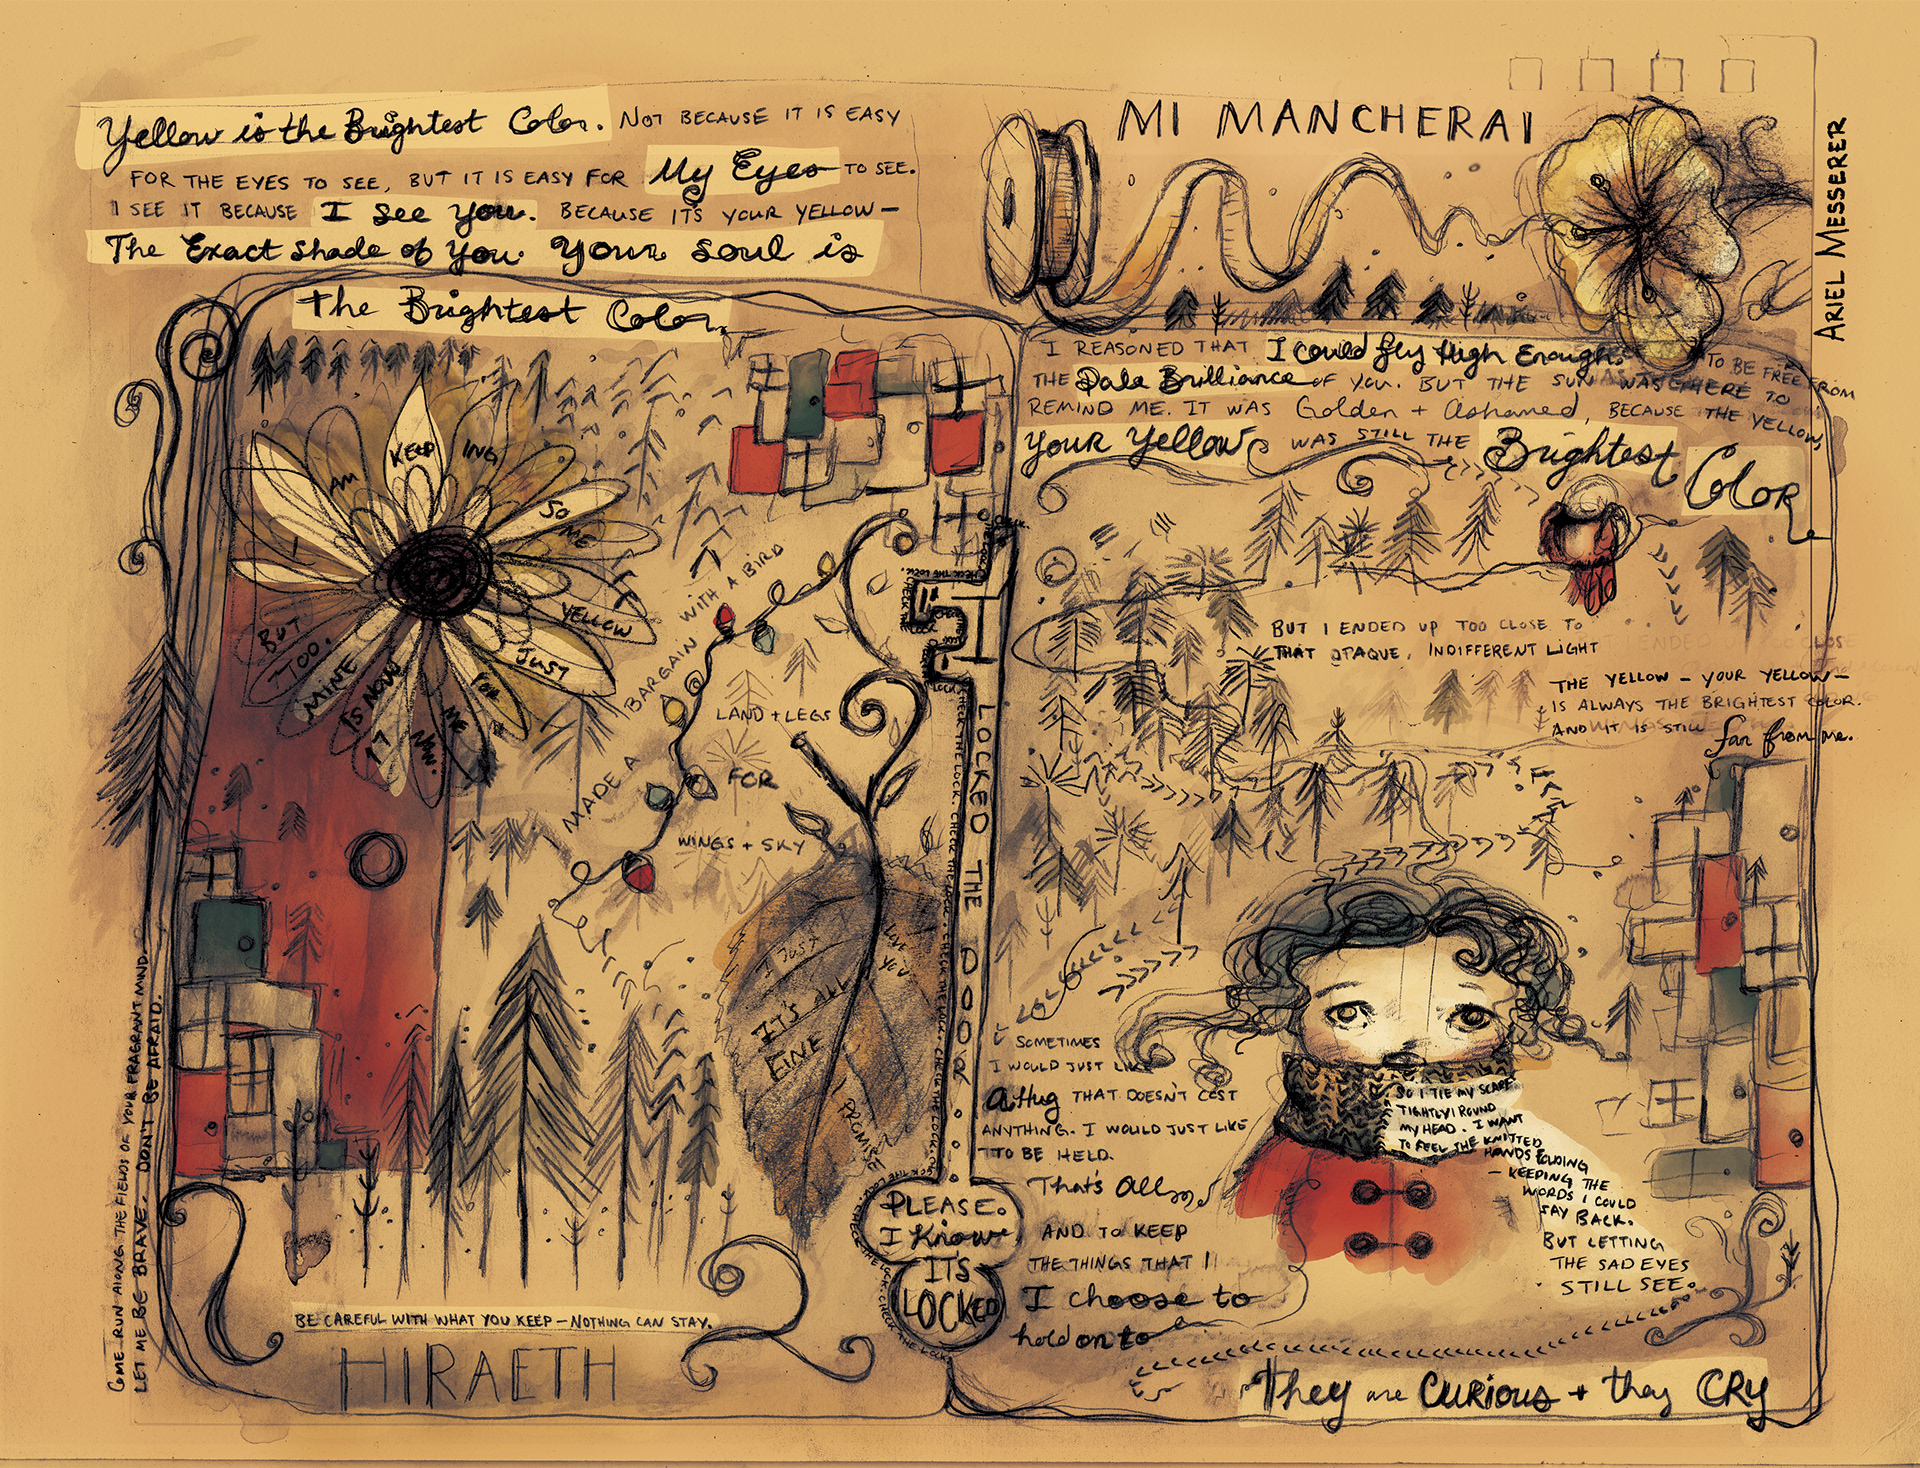 Yellow is the Brightest Color. NOT BECAUSE IT IS EASY
FOR THE EYES TO SEE, BUT IT IS EASY FOR My Eyes TO SEE.
I SEE IT BECAUSE I See you. BECAUSE IT'S YOUR YELLOW—
The Exact Shade of You. Your Soul is
The Brightest Color.
I
AM
KEEP
ING
SO
ME
YELLOW
JUST
FOR
ME
NOW.
IT
IS NOW
MINE
TOO.
BUT
MADE A BARGAIN WITH A BIRD
LAND + LEGS
FOR
WINGS + SKY
I Just
LOVE
YOU
IT'S ALL
FINE
I PROMISE
I LOCKED THE DOOR
CHECK THE LOCK. CHECK THE LOCK. CHECK THE LOCK. CHECK THE LOCK. CHECK THE LOCK. CHECK THE LOCK.
PLEASE.
I Know
IT'S
LOCKED
COME RUN ALONG THE FIELDS OF YOUR FRAGRANT MIND.
LET ME BE BRAVE. DON'T BE AFRAID.
BE CAREFUL WITH WHAT YOU KEEP—NOTHING CAN STAY.
HIRAETH
MI MANCHERAI
ARIEL MESSERER
I REASONED THAT I could fly High Enough TO BE FREE FROM
THE Pale Brilliance of YOU. BUT THE SUN WAS THERE TO
REMIND ME. IT WAS Golden + Ashamed, BECAUSE THE YELLOW,
your yellow WAS STILL THE Brightest Color
BUT I ENDED UP TOO CLOSE TO
THAT OPAQUE, INDIFFERENT LIGHT
THE YELLOW — YOUR YELLOW—
IS ALWAYS THE BRIGHTEST COLOR.
AND IT IS STILL far from me.
SOMETIMES
I WOULD JUST LIKE
A Hug THAT DOESN'T COST
ANYTHING. I WOULD JUST LIKE
TO BE HELD.
That's All
AND TO KEEP
THE THINGS THAT I
I choose to
hold on to
SO I TIE MY SCARF
TIGHTLY ROUND
MY HEAD. I WANT
TO FEEL THE KNITTED
HANDS FOLDING
— KEEPING THE
WORDS I COULD
SAY BACK.
BUT LETTING
THE SAD EYES
STILL SEE.
They are Curious + they CRY